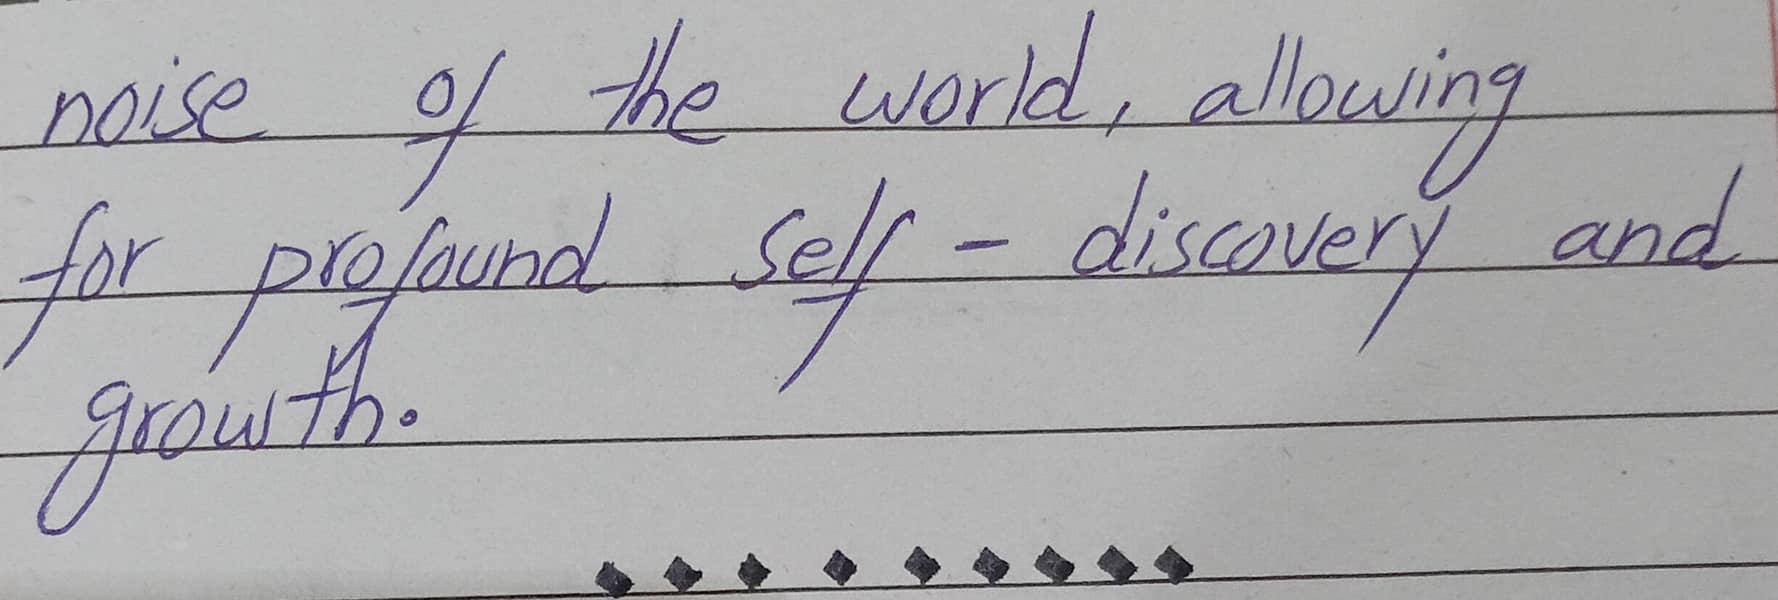 noise of the world, allowing
for profound self - discovery and
growth.